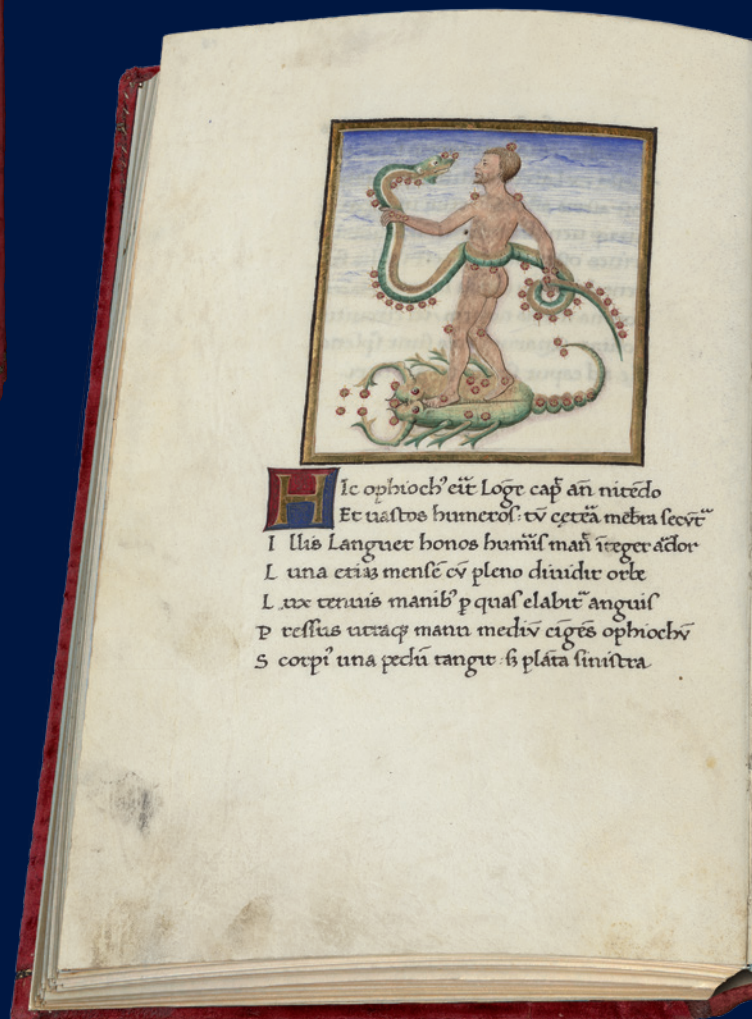 HIc ophioch' erit Loge cap̄ an̄ nitēdo
Et uastos humeros: tū cetēa mēbra secūt᷑
I llis Languet honos humīs man̄ īteger ādor
L una etiaʒ mensē cū pleno diuidit orbe
L ux tenuis manib' p quas elabit᷑ anguis
P ressus utraqʒ manu mediū cīgēs ophiochū
S corpi' una pedū tangit: sʒ plāta sinistra